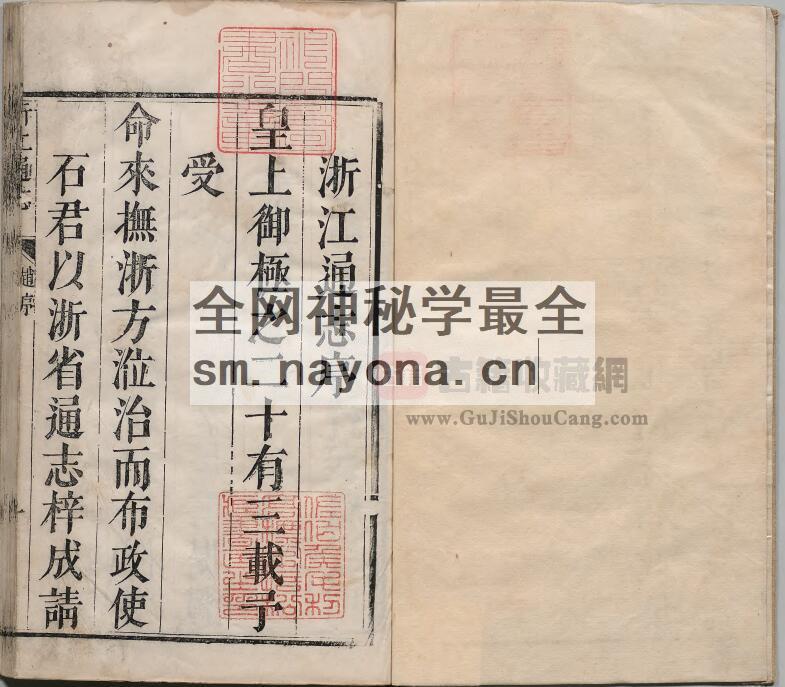 浙江通志序
皇上御極之二十有三載予
受
命來撫浙方涖治而布政使
石君以浙省通志梓成請
浙江通志
趙序
全网神秘学最全
sm.nayona.cn
古籍收藏網
www.GuJiShouCang.com